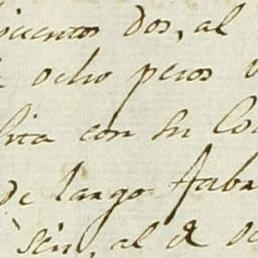 cientos dos, al
ocho pesos
con su Co
de largo fabr
seis, al de oc